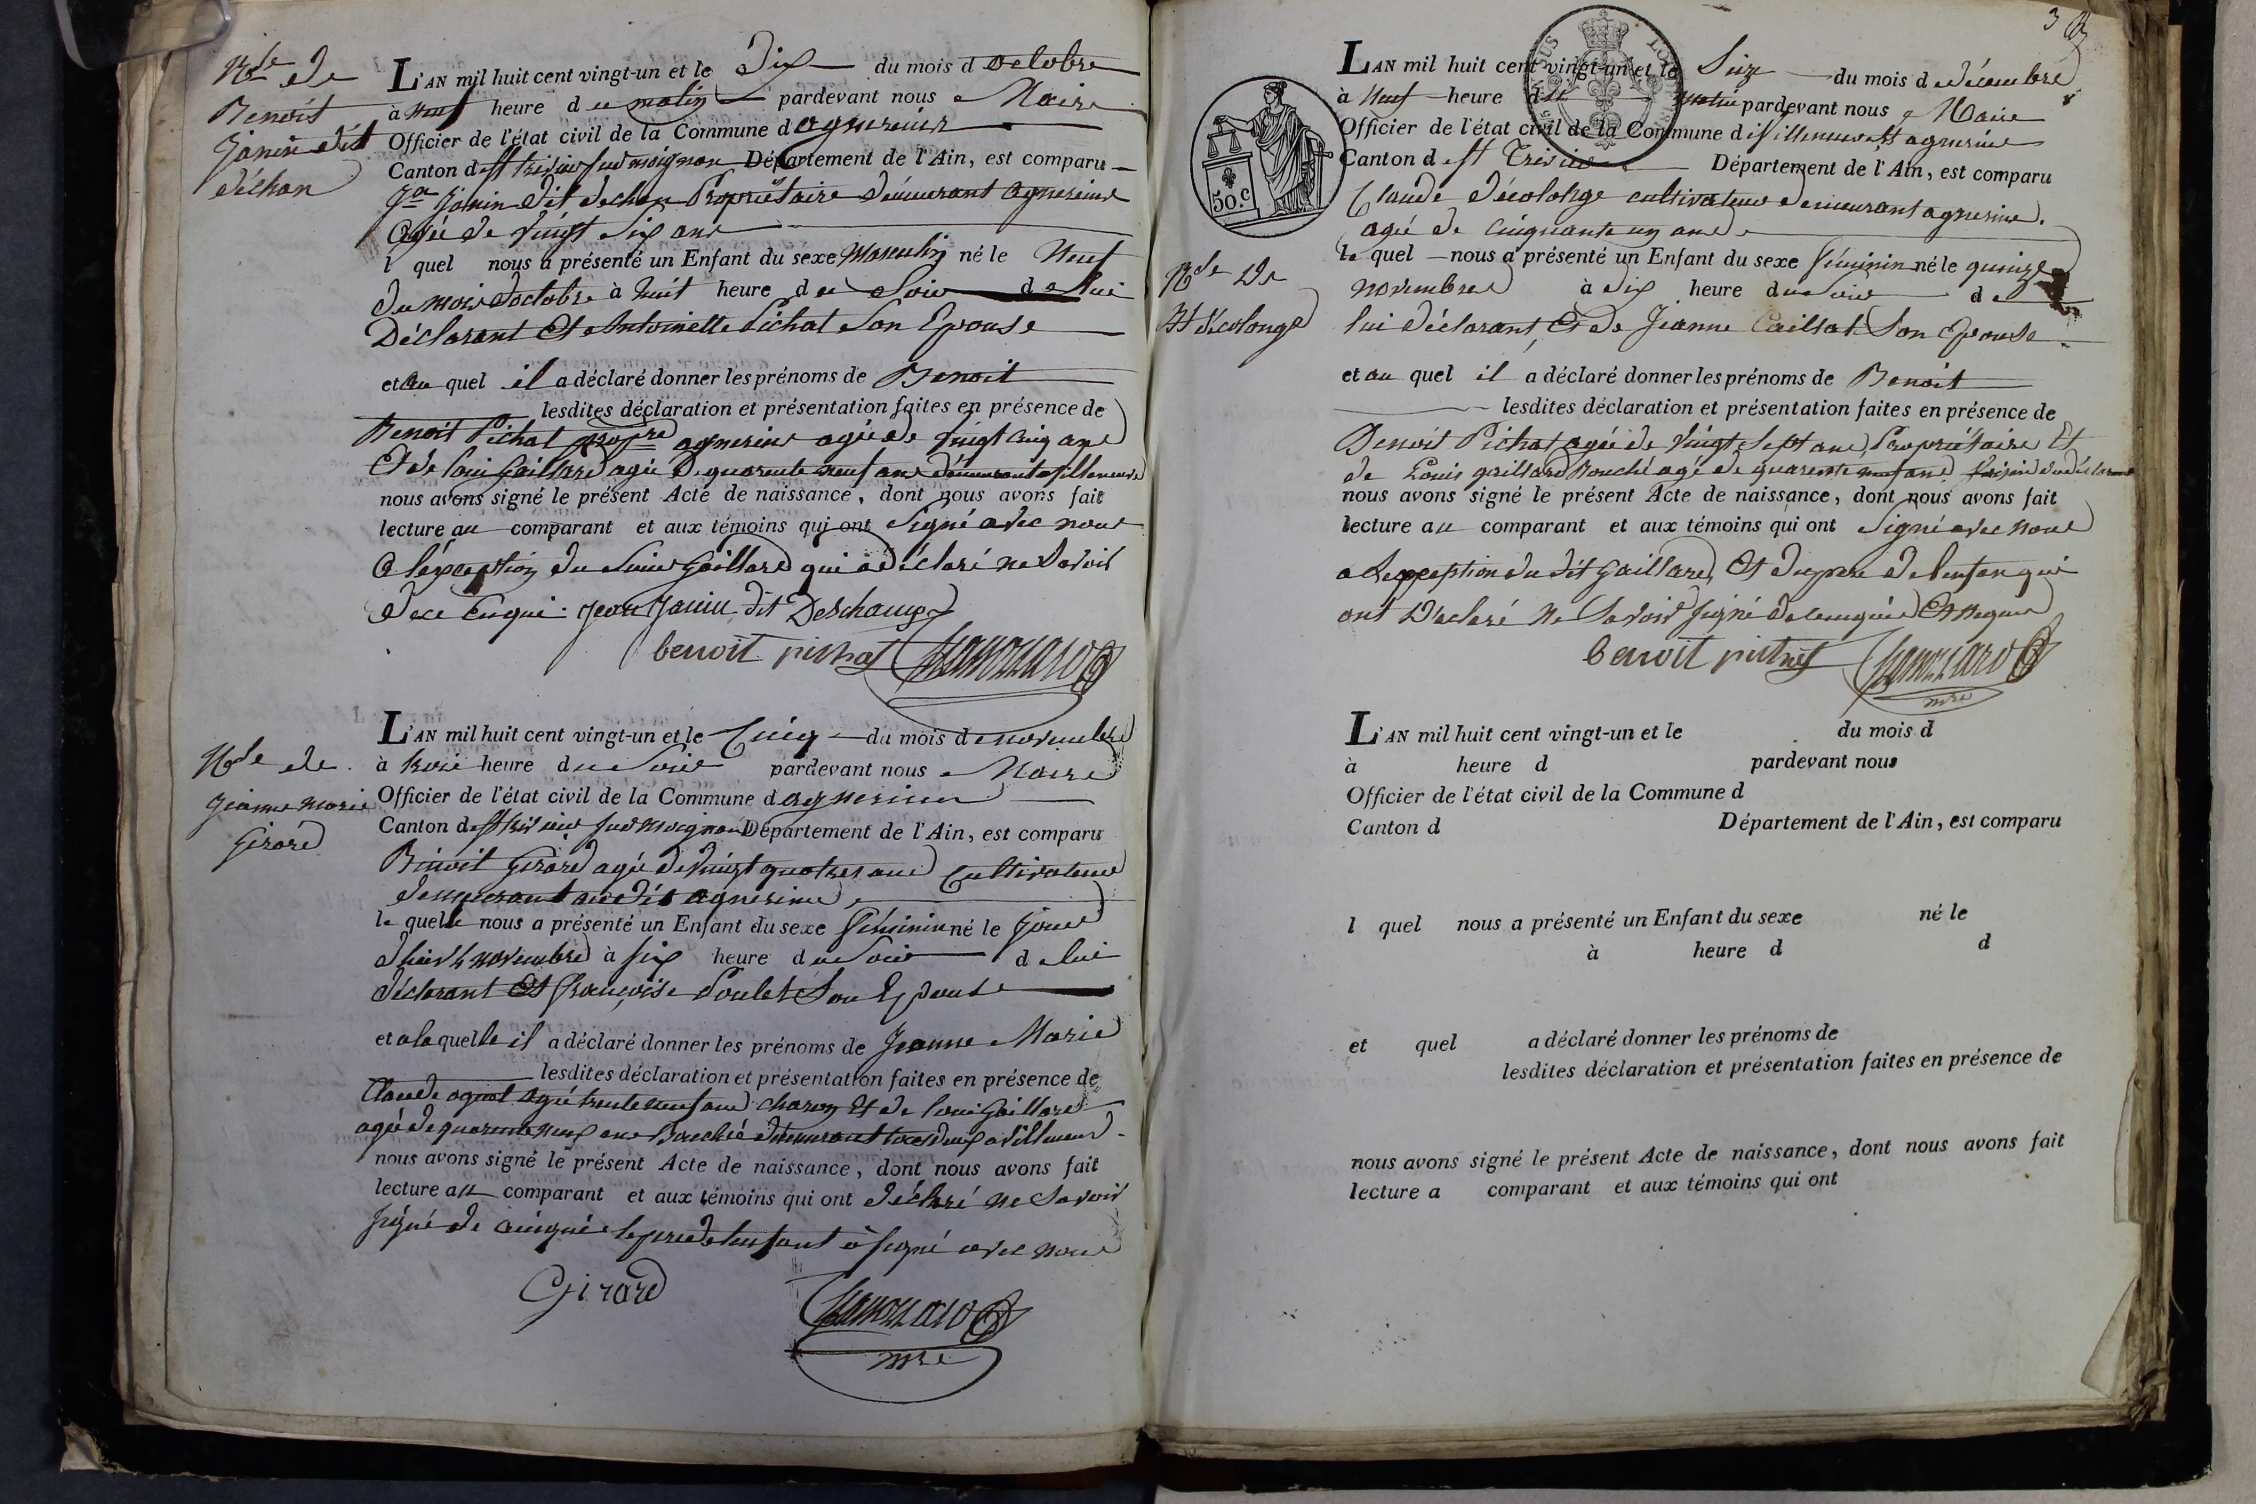 Nce de
Benoit
Janin dit
déchan
L'AN mil huit cent vingt-un et le Dix du mois d octobre
à neuf heure du matin pardevant nous Maire
Officier de l'état civil de la Commune d agnereins
Canton de St trivier sur moignan Département de l'Ain, est comparu
Jn Janin dit dechan Propriétaire demeurant agnereins
agée de vingt six ans
l quel nous a présenté un Enfant du sexe Masculin né le Neuf
du mois d'octobre à huit heure du soir de lui
Déclarant Et Antoinette Pichat son Epouse
et au quel il a déclaré donner les prénoms de Benoit
lesdites déclaration et présentation faites en présence de
Benoit Pichat propre agnerins agée de vingt cinq ans
Et de loui Gaillard agée de quarente neuf ans demeurant a villeneuve
nous avons signé le présent Acte de naissance, dont nous avons fait
lecture au comparant et aux témoins qui ont signé avec nous
a l'éxception du Gaillard qui a déclaré ne savoir
de ce enqui. jean Janin dit Deschamp
benoit pichat
L'AN mil huit cent vingt-un et le Cinq du mois de novembre
Nce de
jeanne marie
Girard
à trois heure du soir pardevant nous Maire
Officier de l'état civil de la Commune d agnerins
Canton de St trivier sur moignan Département de l'Ain, est comparu
Binoit Girard agée de vingt quatres ans Cultivateur
demeurant au dit agnerins
le quelle nous a présenté un Enfant du sexe féminin né le jour
d'hier 4 novembre à six heure du soir de lui
déclarant Et françoise Poulet son Epouse
et a la quelle il a déclaré donner les prénoms de Jeanne Marie
lesdites déclaration et présentation faites en présence de
Claude agée trente neuf ans charon Et de loui Gaillard
agée de quarente neuf ans Bouchée demeurant tous deux a villeneuve
nous avons signé le présent Acte de naissance, dont nous avons fait
lecture au comparant et aux témoins qui ont déclaré ne savoir
signé de ce enquis le pere de lenfant a signé avec nous
Girard
mre
3
L'AN mil huit cent vingt-un et le Seize du mois de décembre
à neuf heure du matin pardevant nous Maire
Officier de l'état civil de la Commune de villeneuve et agnerins
Canton de St Trivier Département de l'Ain, est comparu
50.c
Claude décolonge cultivateur demeurant agnerins.
agée de Cinquante un ans
le quel nous a présenté un Enfant du sexe féminin né le quinze
Nce De
Bt décolonge
novembre à dix heure du soir de
lui déclarant, Et de Jeanne Caillat Son Epouse
et au quel il a déclaré donner les prénoms de Benoit
lesdites déclaration et présentation faites en présence de
Benoit Pichat agée de vingt sept ans, Propriétaire Et
de Louis gaillard Bouché agé de quarente neuf ans voisin du déclarant
nous avons signé le présent Acte de naissance, dont nous avons fait
lecture au comparant et aux témoins qui ont signé avec nous
a lexception du dit Gaillard, Et du pere de lenfan qui
ont Déclaré ne savoir signé de ce enquis Et requis
benoit pichat
mre
L'AN mil huit cent vingt-un et le du mois d
à heure d pardevant nous
Officier de l'état civil de la Commune d
Canton d Département de l'Ain, est comparu
l quel nous a présenté un Enfant du sexe né le
à heure d d
et quel a déclaré donner les prénoms de
lesdites déclaration et présentation faites en présence de
nous avons signé le présent Acte de naissance, dont nous avons fait
lecture a comparant et aux témoins qui ont